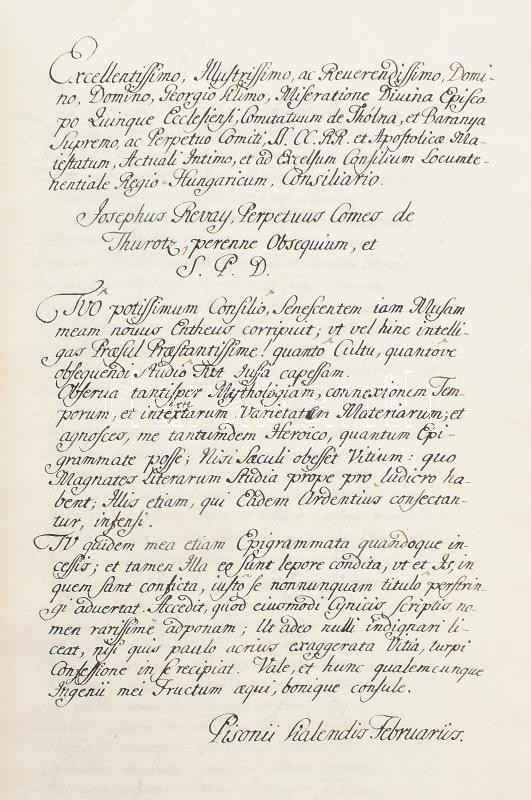 Excellentissimo, Illustrissimo, ac Reverendissimo, Domi-
no, Domino, Georgio Klimo, Miseratione Divina Episco
po Quinque Ecclesiensi, Comitatuum de Thólna, et Baranya
Supremo, ac Perpetuo Comiti, SS. CC. RR. et Apostolicæ Ma-
iestatum, Actuali Intimo, et ad Excelsum Consilium Locumte-
nentiale Regio-Hungaricum, Consiliario.
Josephus Revay, Perpetuus Comes de
Thurotz, perenne Obsequium, et
S. P. D.
TVO potissimum Consiliô, Senescentem iam Musam
meam novus Entheus corripuit; vt vel hinc intelli-
gas Præsul Præstantissime! quantô Cultu, quantove
obsequendi studiô Tua Iussa capessam.
Observa tantisper Mythologiam, connexionem Tem-
porum, et intextarum Varietatem Materiarum; et
agnosces, me tantumdem Heroïco, quantum Epi-
grammate posse; Nisi Sæculi obesset Vitium: quo
Magnates Literarum Studia prope pro ludicro ha-
bent; Illis etiam, qui Eadem Ardentius consectan-
tur, infensi.
TV quidem mea etiam Epigrammata quandoque in-
cessis; et tamen Illa eo sunt lepore condita, vt et Is, in
quem sunt conficta, iustô se nonnunquam titulô perstrin-
gi advertat. Accedit, quod eiusmodi Cynicis scriptis, no-
men rarissime adponam; Ut adeo nulli indignari li-
ceat, nisi quis paulo acrius exaggerata Vitia, turpi
Confessione in se recipiat. Vale, et hunc qualemcunque
Ingenii mei Fructum æqui, bonique consule.
Pisonii Kalendis Februariis.